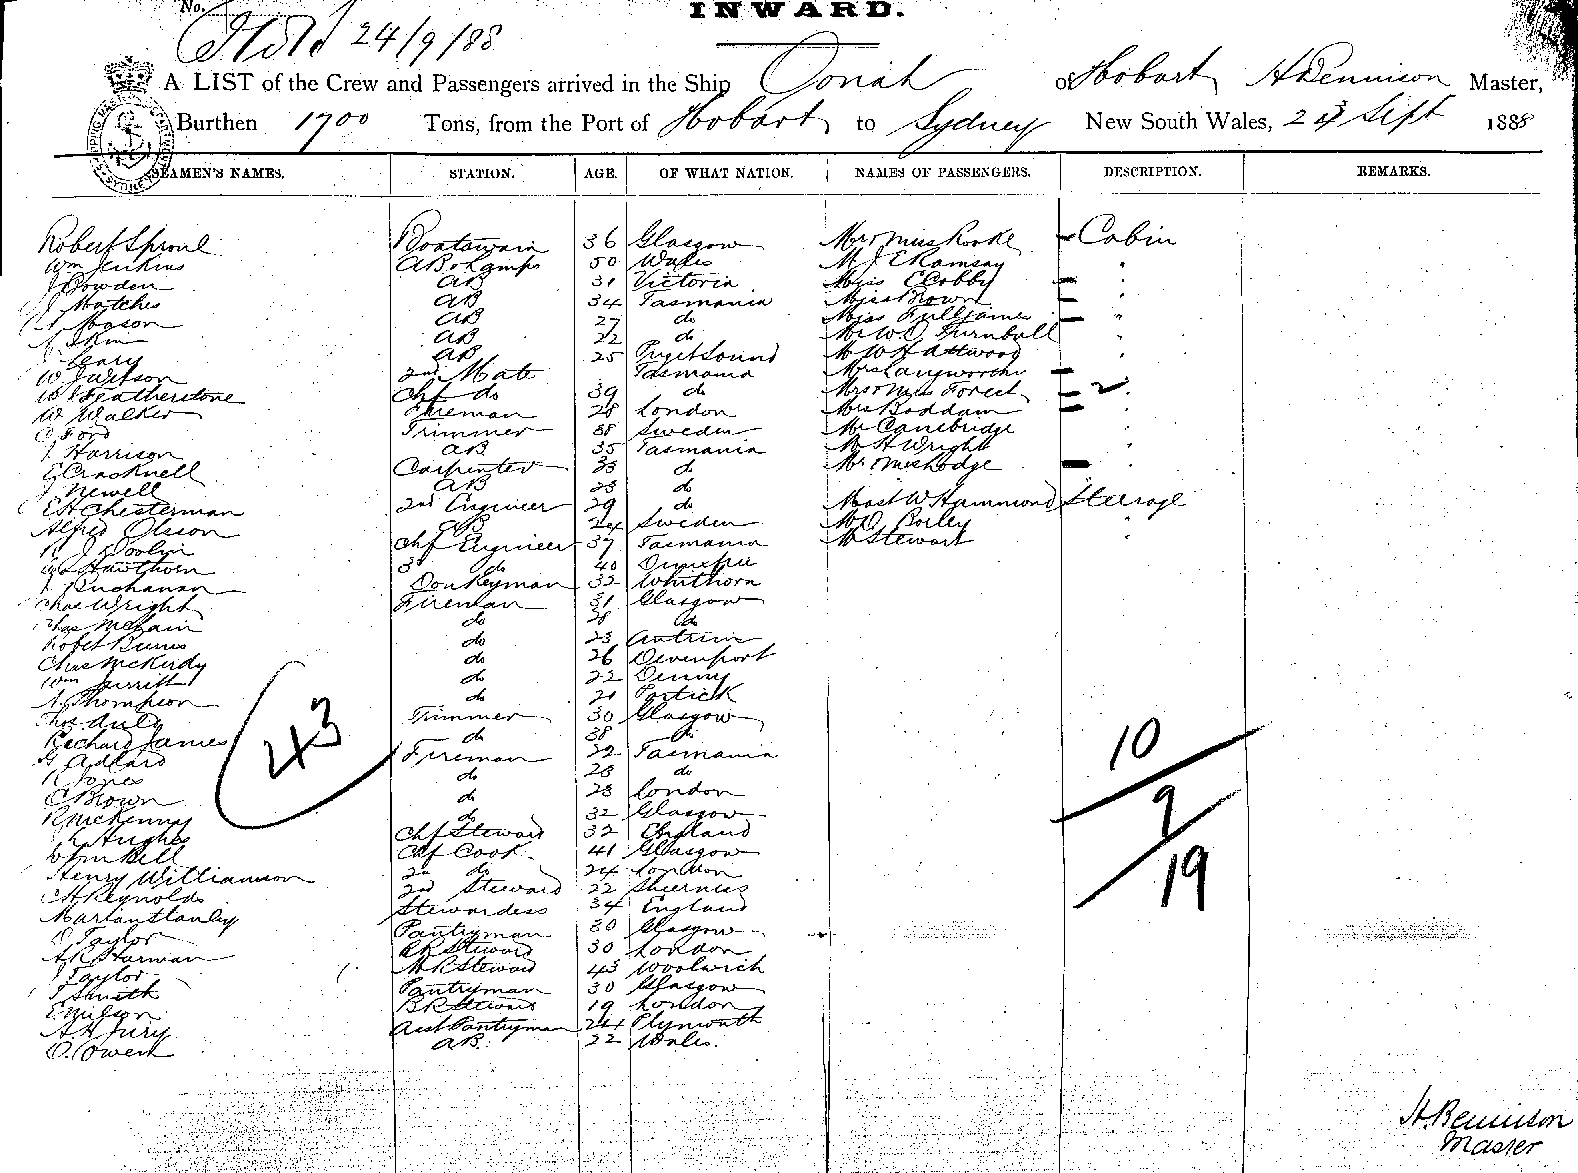 No.
INWARD.
24/9/88
A LIST of the Crew and Passengers arrived in the Ship Oonah of Hobart H Bennison Master,
Burthen 1700 Tons, from the Port of Hobart to Sydney New South Wales, Sept 1888
SEAMEN'S NAMES. STATION. AGE. OF WHAT NATION. NAMES OF PASSENGERS. DESCRIPTION. REMARKS.
Robert Sproul Boatswain 36 Glasgow Mr & Miss Rooke Cabin
Wm Jenkins AB & Lamps 50 Wales Mr J C Ramsay "
J Cowden AB 31 Victoria Miss E Cobby "
J Matches AB 34 Tasmania Miss Brown "
Mason AB 27 do Miss Fulljames "
AB 22 do Mr W D Turnbull "
J Leary AB 25 Puget Sound Mr W H Attwood "
W J Wilson 2nd Mate Tasmania Mrs Langworthy
W Featherstone Chf do 39 do Mrs & Miss Forest 2 "
W Walker Fireman 28 London Mrs Baddam "
C Ford Trimmer 38 Sweden Mr Canebridge "
J Harrison AB 35 Tasmania Mr H Wright "
E Cracknell Carpenter 33 do Mr & Miss Hodge "
J Newell AB 23 do
E H Chesterman 2nd Engineer 29 do Mast W Hammond Steerage
Alfred Olsson AB 24 Sweden Mr D Borley "
Chf Engineer 37 Tasmania Mr Stewart "
Hawthorn 3 do 40
J Buchanan Donkeyman 32 Whithorn
Chas Wright Fireman 31 Glasgow
Chas McBain do 28 do
Robt Burns do 23 Antrim
Chas McKirdy do 26 Devenport
Wm do 22 Denny
A. Thompson do 21 Partick
Thos Auld Trimmer 30 Glasgow
Richard James do 38 do
G Adlard Fireman 22 Tasmania
R Jones do 28 do
C Brown do 23 London
R McKenny do 32 Glasgow
Hughes Chf Steward 32 England
Wm Bell Chf Cook 41 Glasgow
Henry Williamson 2nd do 24 London
C H Reynolds 2nd Steward 22 Sheerness
Marian Stanley Stewardess 34 England
C Taylor Pantryman 30 Glasgow
A R Harman BR Steward 30 London
J Taylor MR Steward 43 Woolwich
J Smith Pantryman 30 Glasgow
E Wilson BR Steward 19 London
A H Jury Asst Pantryman 24 Plymouth
O. Owen AB 22 Wales.
43
10
9
19
H Bennison
Master